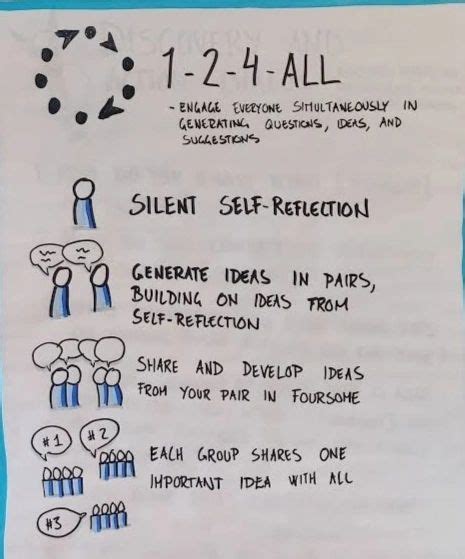 1-2-4-ALL
- ENGAGE EVERYONE SIMULTANEOUSLY IN
GENERATING QUESTIONS, IDEAS, AND
SUGGESTIONS
SILENT SELF-REFLECTION
GENERATE IDEAS IN PAIRS,
BUILDING ON IDEAS FROM
SELF-REFLECTION
SHARE AND DEVELOP IDEAS
FROM YOUR PAIR IN FOURSOME
#1 #2
EACH GROUP SHARES ONE
IMPORTANT IDEA WITH ALL
#3